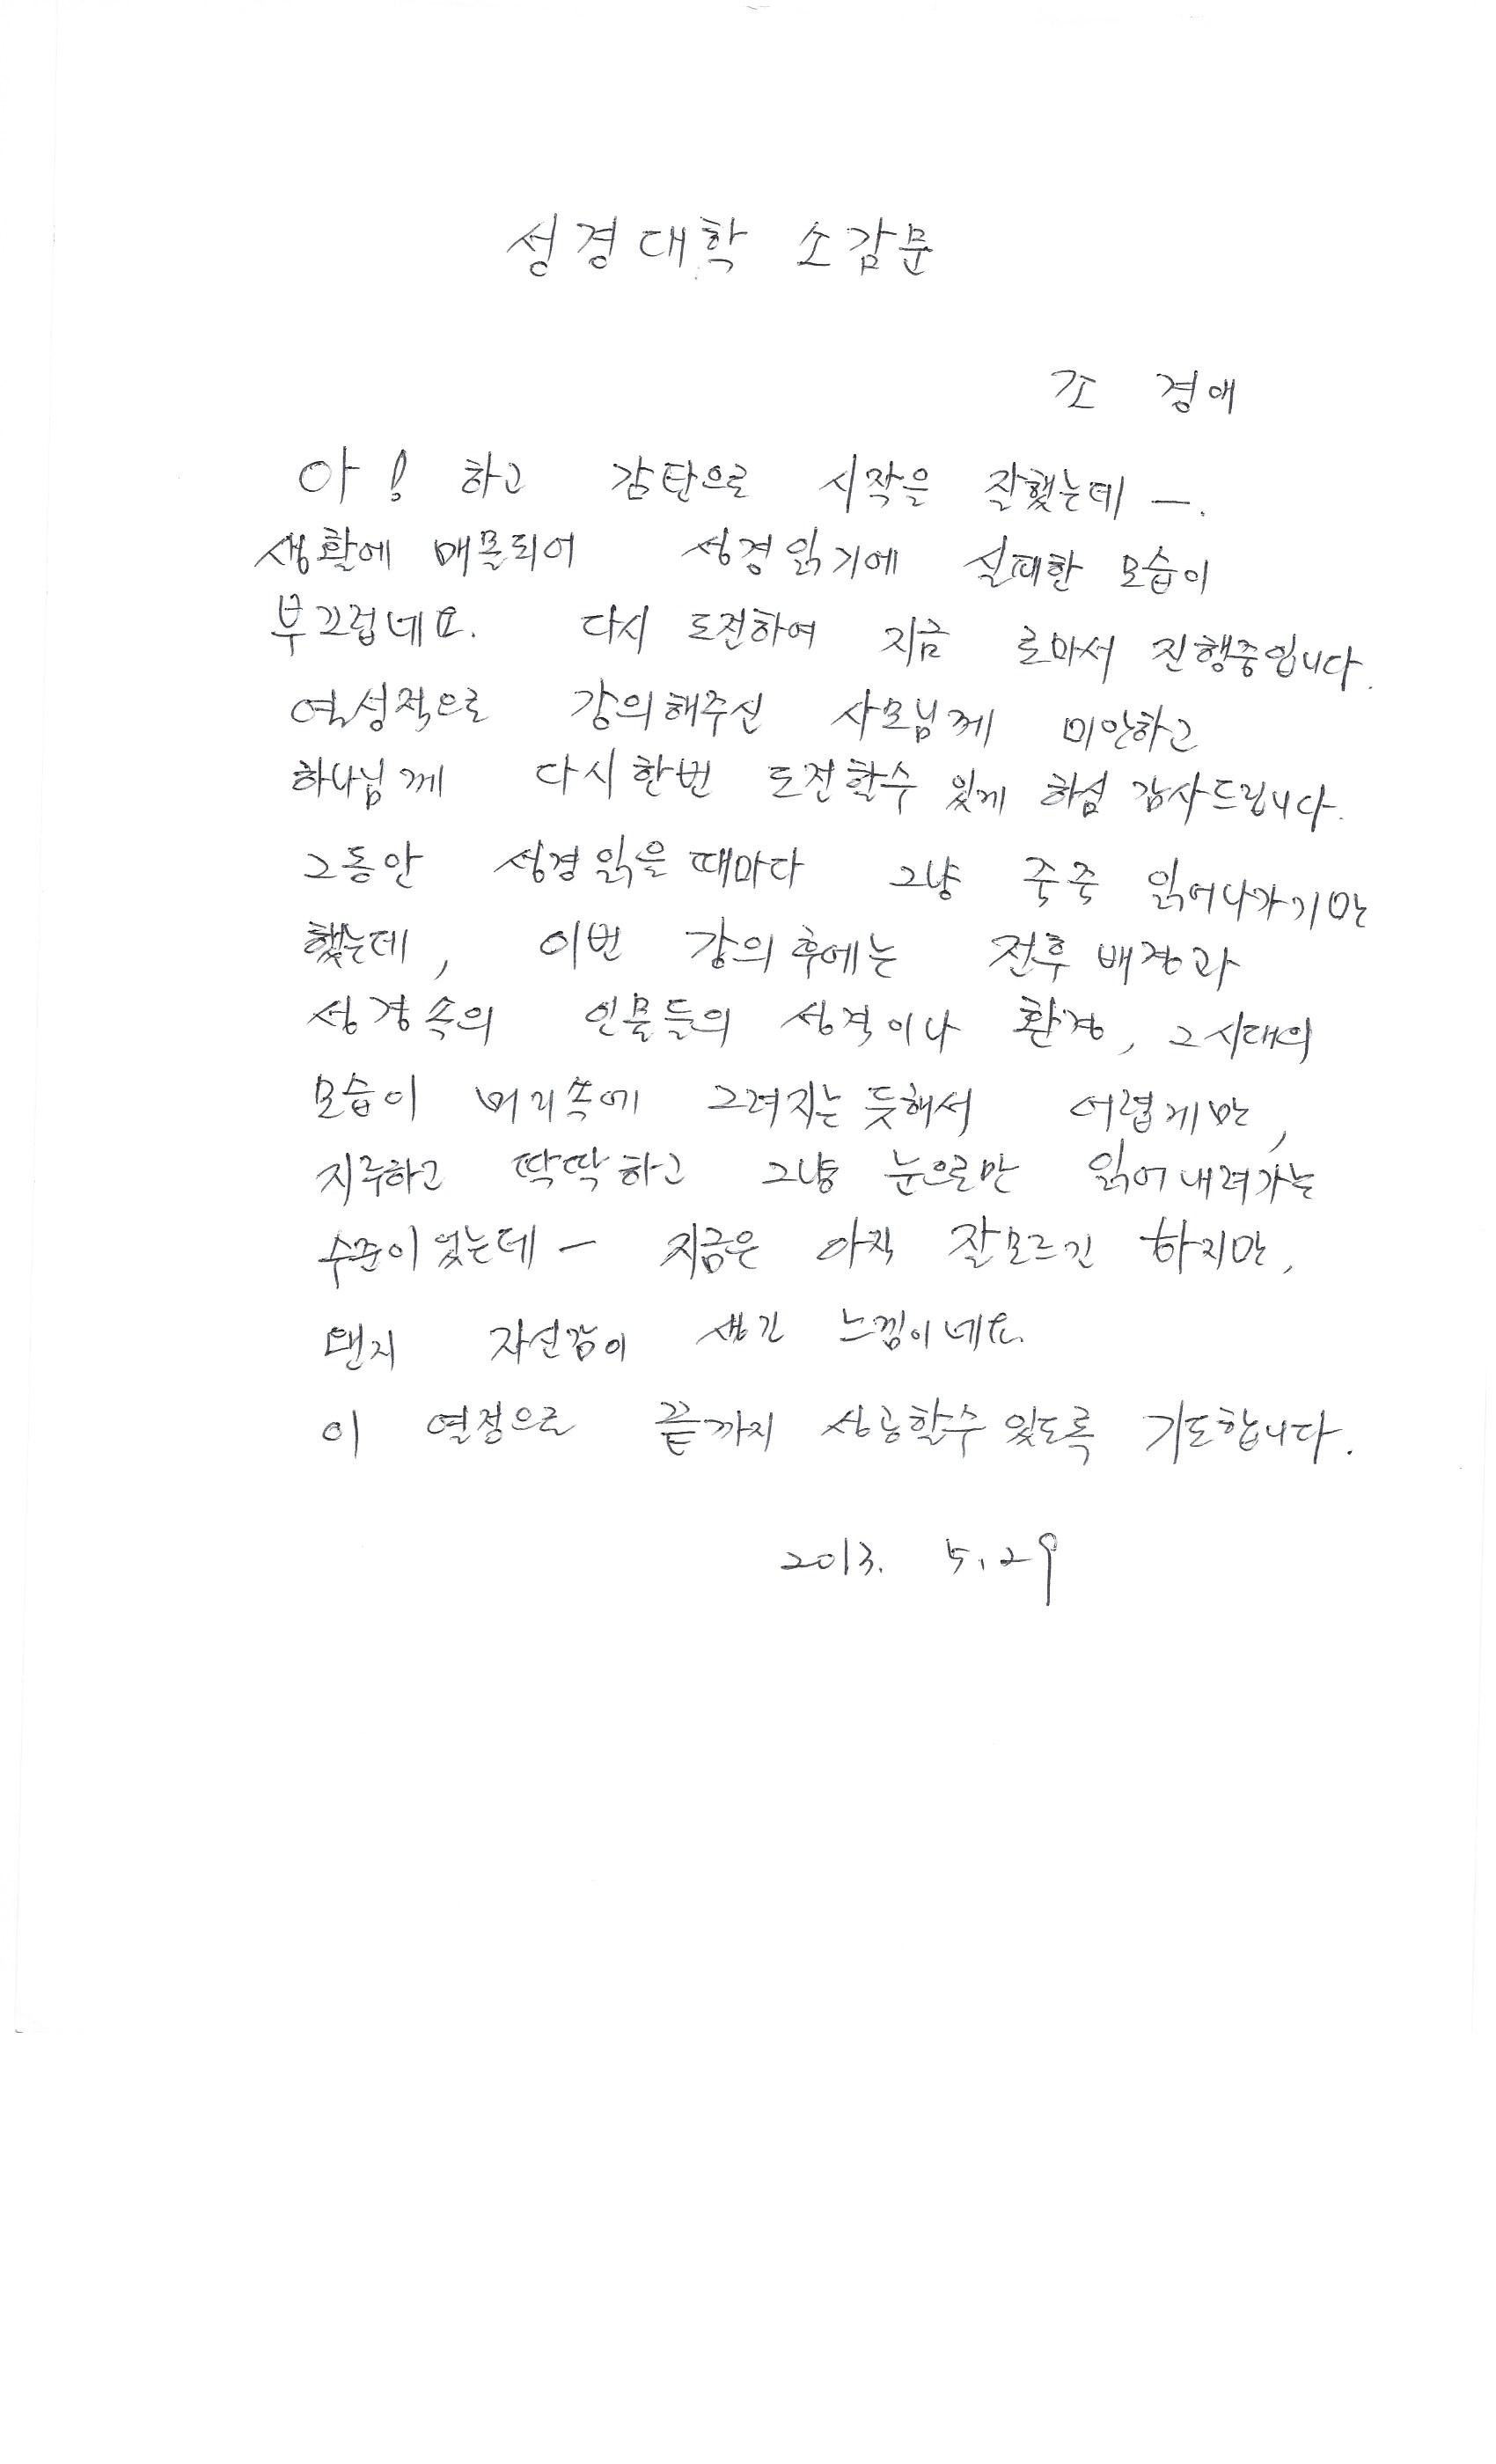 성경대학 소감문
조 경애
아! 하고 감탄으로 시작을 잘했는데 —.
생활에 매몰되어 성경읽기에 실패한 모습이
부끄럽네요. 다시 도전하여 지금 로마서 진행중입니다.
열성적으로 강의해주신 사모님께 미안하고
하나님께 다시한번 도전할수 있게 하심 감사드립니다.
그동안 성경읽을때마다 그냥 죽죽 읽어나가기만
했는데, 이번 강의후에는 전후 배경과
성경속의 인물들의 성격이나 환경, 그시대의
모습이 머리속에 그려지는듯해서 어렵게만,
지루하고 딱딱하고 그냥 눈으로만 읽어내려가는
수준이었는데 — 지금은 아직 잘모르긴 하지만,
왠지 자신감이 생긴 느낌이네요.
이 열정으로 끝까지 성공할수 있도록 기도합니다.
2013. 5.29